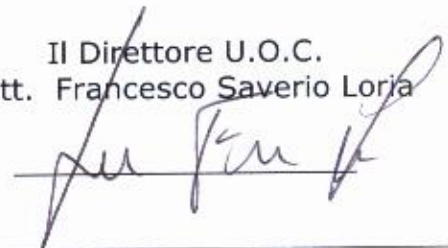 Il Direttore U.O.C.
tt. Francesco Saverio Loria